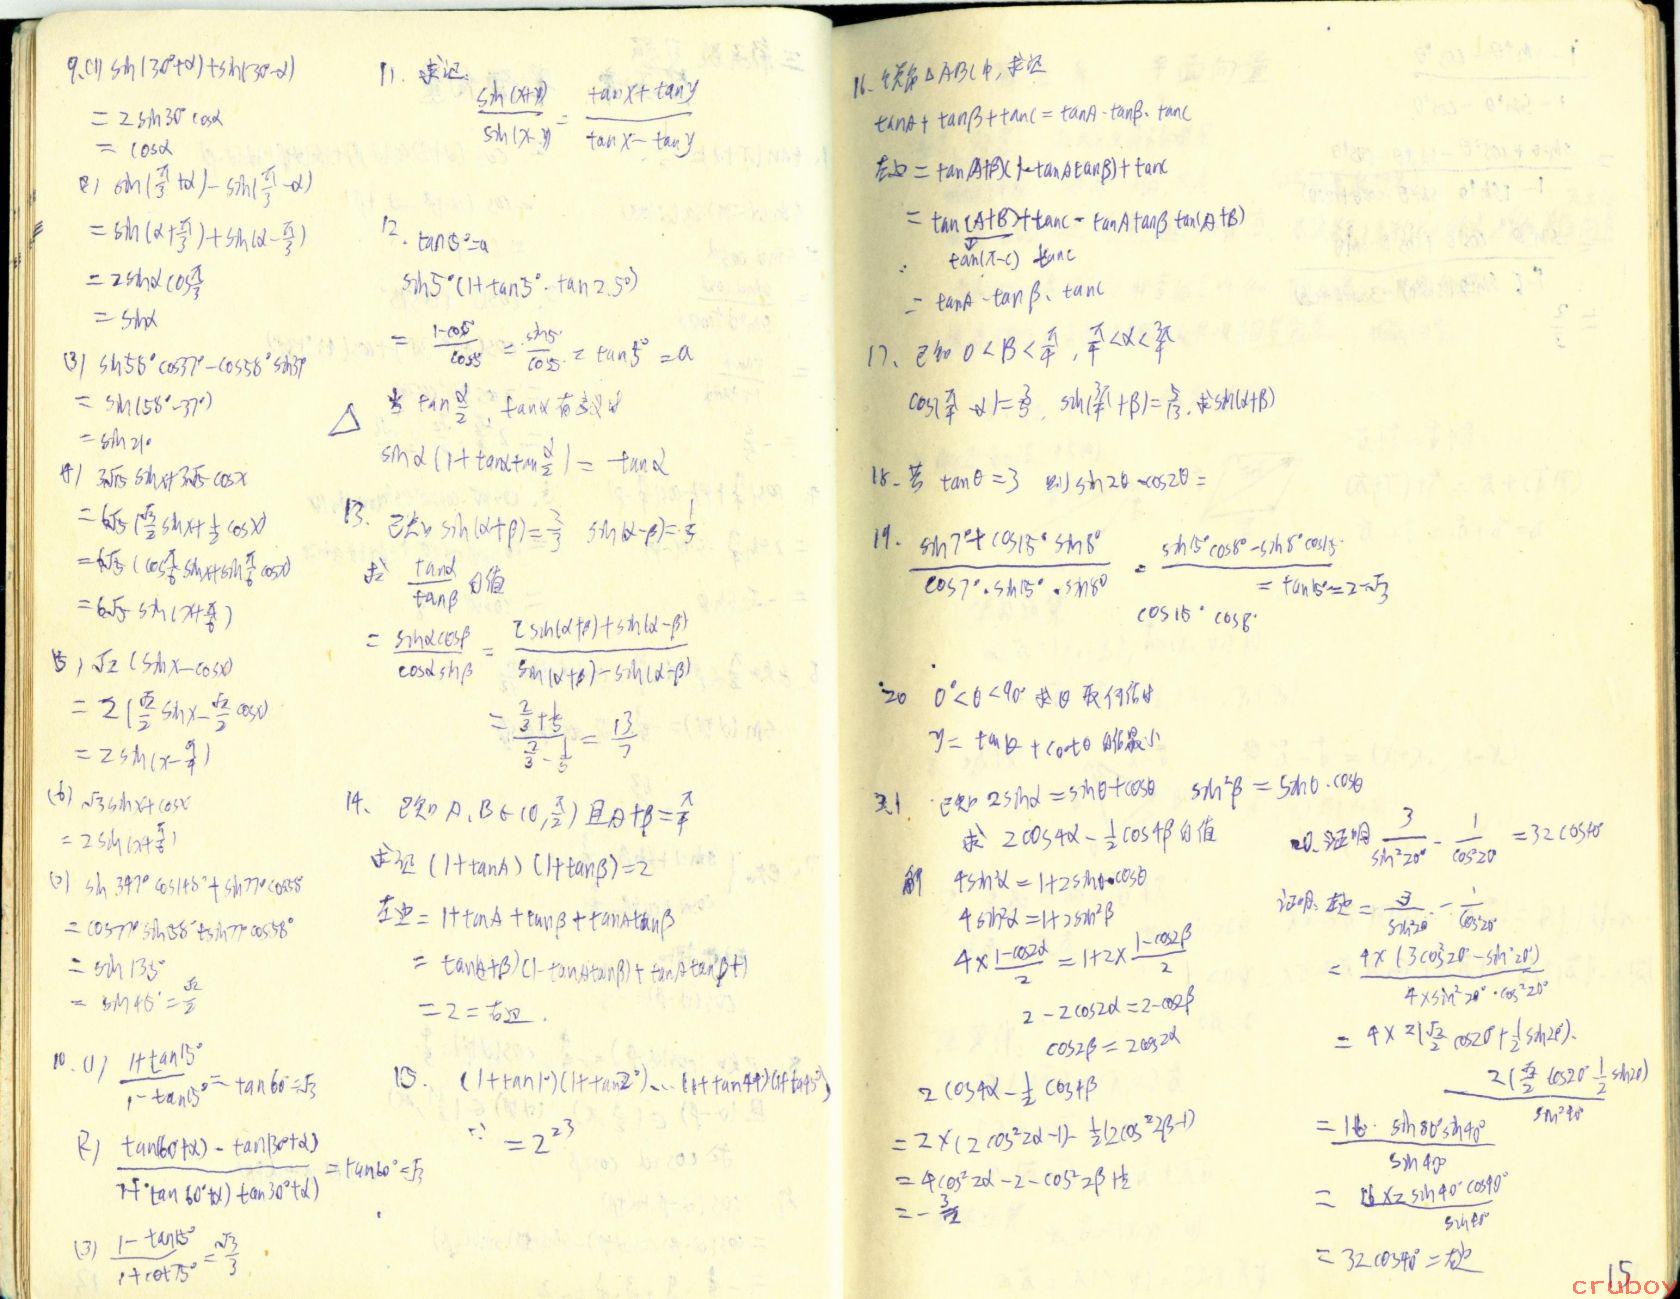 9.(1) sin(30°+α)+sin(30°-α)
= 2sin30° cosα
= cosα
(2) sin(π/3+α)-sin(π/3-α)
= sin(α+π/3)+sin(α-π/3)
= 2sinα cosπ/3
= sinα
(3) sin58° cos37°-cos58° sin37°
= sin(58°-37°)
= sin21°
(4) 3√15 sinx+3√5 cosx
= 6√5 (√3/2 sinx+1/2 cosx)
= 6√5 (cosπ/6 sinx+sinπ/6 cosx)
= 6√5 sin(x+π/6)
(5) √2 (sinx-cosx)
= 2 (√2/2 sinx-√2/2 cosx)
= 2sin(x-π/4)
(6) √3sinx+cosx
= 2sin(x+π/6)
sin347° cos148°+sin77° cos58°
= cos77° sin58°+sin77° cos58°
= sin135°
= sin45°=√2/2
10.(1) (1+tan15°)/(1-tan15°)=tan60°=√3
(2) (tan(60°+α)-tan(30°+α))/(1+tan(60°+α)tan(30°+α))
(3) (1-tan15°)/(1+cot75°)=√3/3
11. 求证:
sin(x+y)/sin(x-y) = (tanx+tany)/(tanx-tany)
12. tan5°=a
sin5°(1+tan5°·tan2.5°)
= = sin5/cos5 = tan5°=a
△ 当 tan α/2 tanα有意义时
sinα(1+tanαtan α/2)=tanα
13. 已知 sin(α+β)=2/3 sin(α-β)=1/5
求 tanα/tanβ 的值
= sinαcosβ/cosαsinβ = [sin(α+β)+sin(α-β)]/[sin(α+β)-sin(α-β)]
= (2/3+1/5)/(2/3-1/5) = 13/7
14. 已知 A、B∈(0,π/2) 且A+B=π/4
求证 (1+tanA)(1+tanB)=2
左边=1+tanA+tanB+tanAtanB
= tan(A+B)(1-tanAtanB)+tanAtanB+1
=2=右边.
15. (1+tan1°)(1+tan2°)...(1+tan44°)(1+tan45°)
= 2^23
16. △ABC中,求证
tanA+tanB+tanC=tanA·tanB·tanC
左边=tan(A+B)(1-tanAtanB)+tanC
= tan(A+B)+tanC-tanAtanB tan(A+B)
tan(π-C) tanC
= tanA·tanB·tanC
17. 已知 0<β<π/4, π/4<α<3π/4
cos(π/4-α)=3/5, sin(3π/4+β)=5/13, 求sin(α+β)
18. 若 tanθ=3 则 sin2θ-cos2θ=
19. (sin7°+cos15° sin8°)/(cos7°·sin15°·sin8°) = (sin15°cos8°-sin8°cos15°
= tan15°=2-√3
cos15° cos8°
20 0°<θ<90° 求θ取何值时
y=tanθ+cotθ的值最小
21 已知 2sinα=sinθ+cosθ sin²β=sinθ·cosθ
求 2cos4α-1/2cos4β的值
解 4sin²α=1+2sinθ·cosθ
4sin²α=1+2sin²β
4×(1-cos2α)/2=1+2×(1-cos2β)/2
2-2cos2α=2-cos2β
cos2β=2cos2α
2cos4α-1/2 cos4β
=2×(2cos²2α-1)-1/2(2cos²2β-1)
=4cos²2α-2-cos²2β+1/2
=-3/2
20.证明 3/sin²20°-1/cos²20°=32cos40°
证明:左边=3/sin²20°-1/cos²20°
= 4×(3cos²20°-sin²20°)/(4×sin²20°·cos²20°)
= 4×2(√3/2 cos20°+1/2sin20°)·
2(√3/2 cos20°-1/2sin20°)
sin²40°
= 16·sin80°sin40°/sin40°
= 16×2sin40°cos40°/sin40°
= 32cos40°=右边
15
cruboy